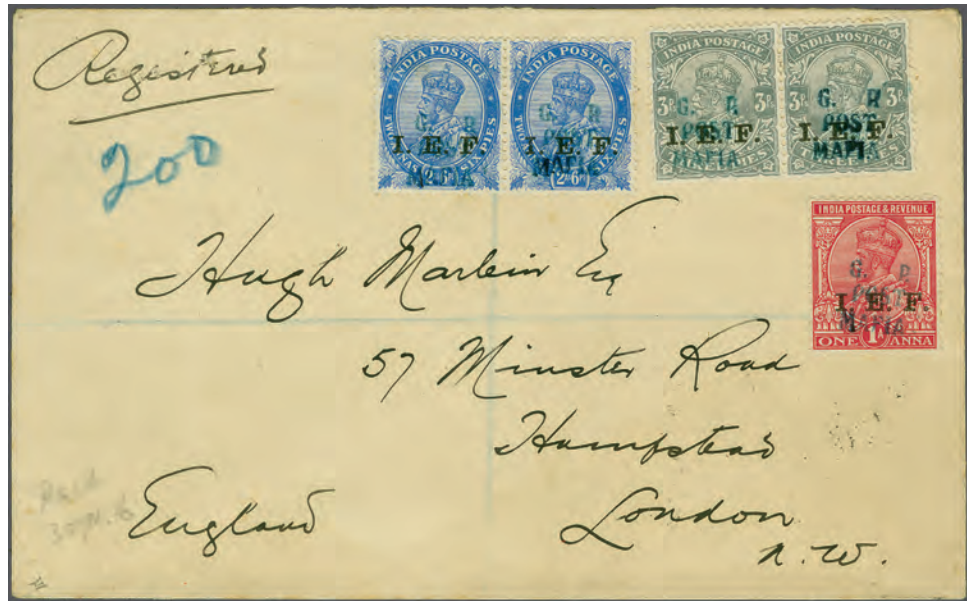 Registered
200
INDIA POSTAGE
I. E. F.
G. R
POST
MAFIA.
TWO ANNAS SIX PIES
(2As6Ps)
INDIA POSTAGE
I. E. F.
G. R
POST
MAFIA.
(2As6Ps)
INDIA POSTAGE
3P. 3P.
G. R
POST
I. E. F.
MAFIA.
INDIA POSTAGE
3P. 3P.
G. R
POST
I. E. F.
MAFIA.
INDIA POSTAGE & REVENUE
G. R
POST
I. E. F.
MAFIA.
ONE 1A ANNA
Hugh Marlein Esq
57 Minster Road
Hampstead
London
N.W.
England